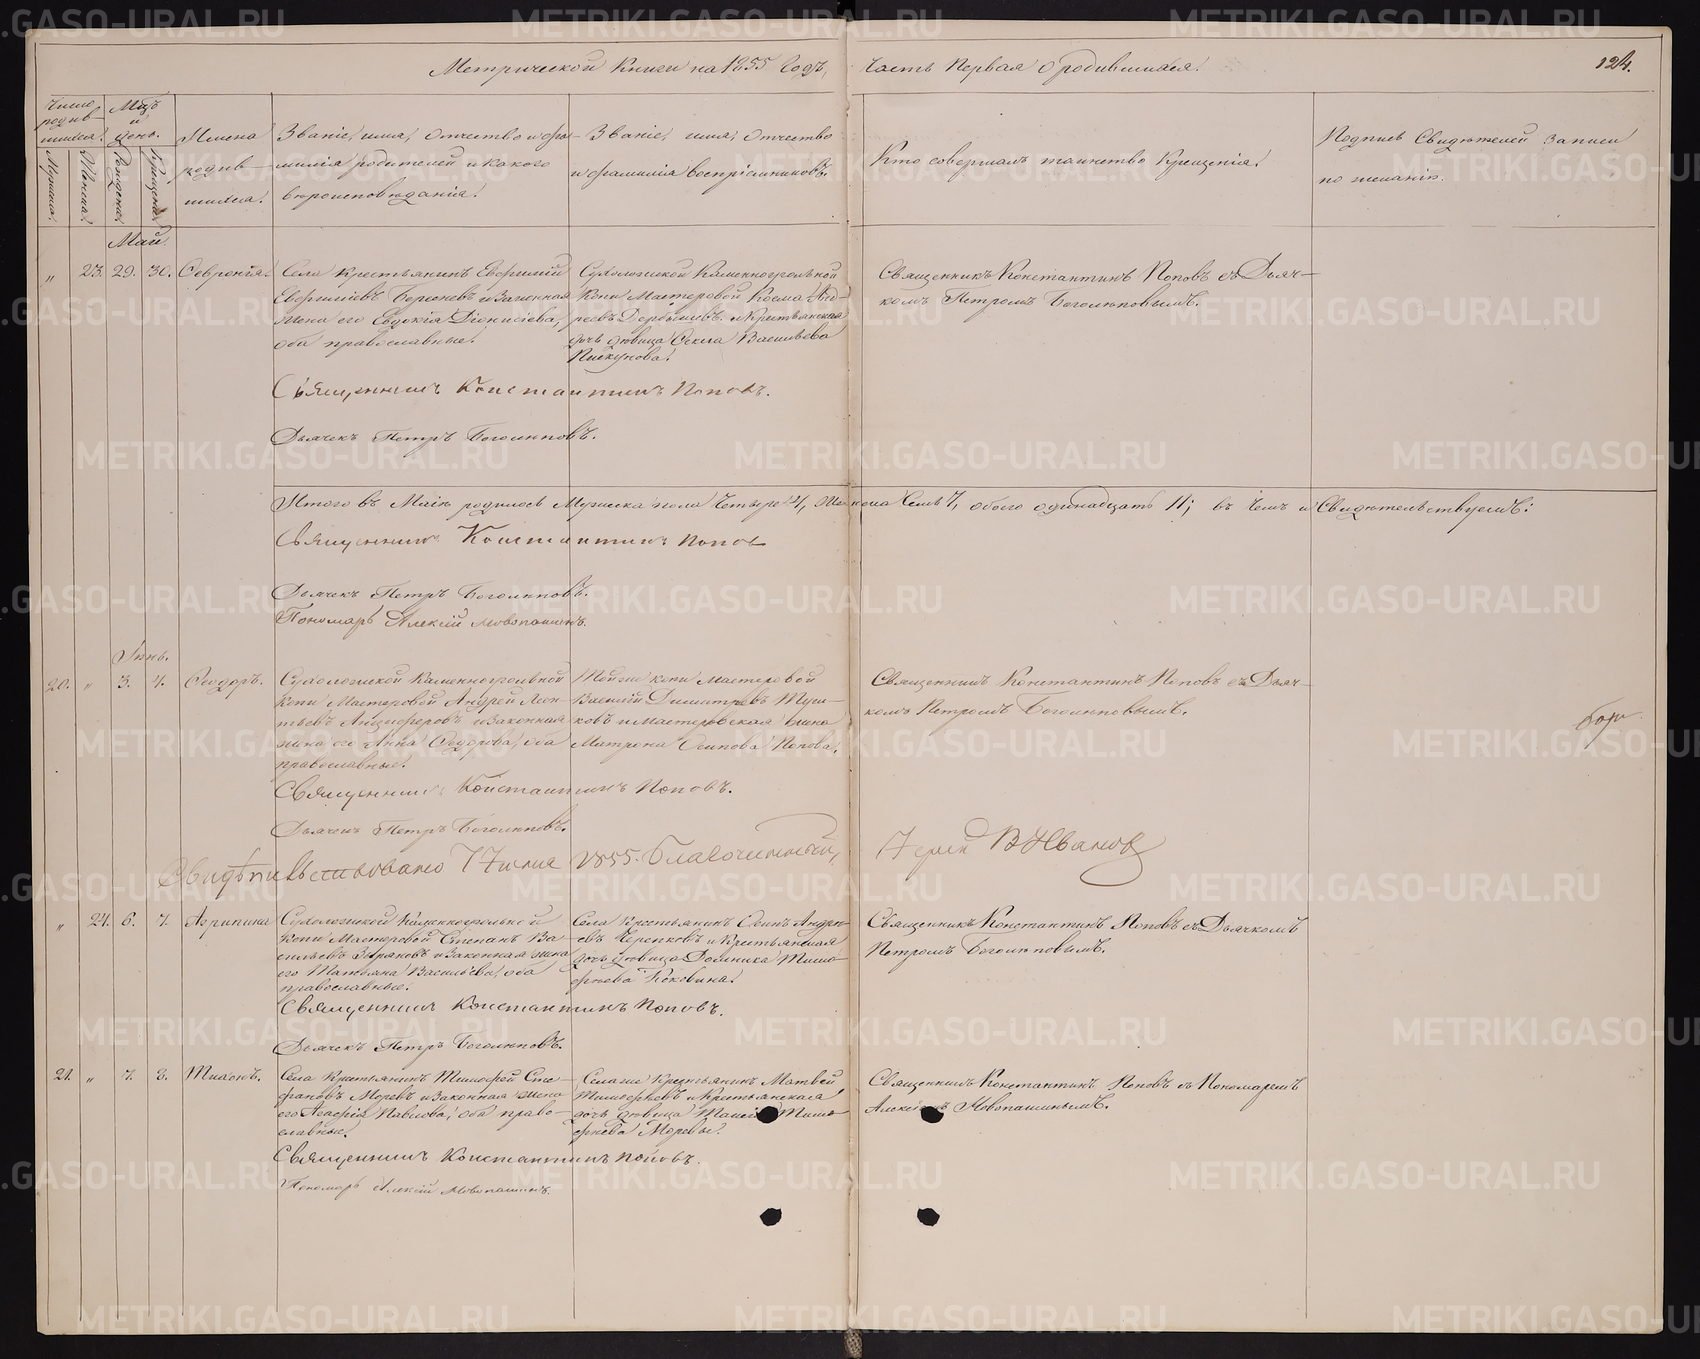 Метрической Книги на 1855 Годъ, Часть Первая о родившихся.
124.
Число родив-
шихся.
Мужска.
Женска.
Мѣц. и день.
Рожденія.
Крещенія.
Имена
родив-
шихся.
Званіе, имя, отчество и фа-
милія родителей и какого
вѣроисповѣданія.
Званіе, имя, отчество
и фамилія воспріемниковъ.
Кто совершалъ таинство Крещенія.
Подпись Свидѣтелей Записи
по желанію.
Май.
" 23. 29. 30. Февронія.
Села Крестьянинъ Евфимій
женa его Евдокія Діонисіева,
оба православные.
Сухоложской Каменноугольной
Копи Мастеровой Косма
дочь дѣвица Ѳекла Васильева
Пискунова.
Священникъ Константинъ Поповъ съ Дьяч-
комъ Петромъ Боголюповымъ.
Священникъ Константинъ Поповъ.
Дьячекъ Петръ Боголюповъ.
Итого въ Маіѣ родилось Мужска пола Четыре 4, Женска Семь 7, обоего одинадцать 11; въ чемъ и Свидѣтельствуемъ:
Священникъ Константинъ Попов
Дьячекъ Петръ Боголюповъ.
Пономарь Алексій Новопашинъ.
Іюнь.
20. " 3. 4. Ѳеодоръ.
Сухоложской Каменноугольной
Копи Мастеровой Андрей Леон-
тьевъ и Законная
жена его Анна Ѳедорова, оба
православные.
Тойже копи Мастеровой
Василій Димитріевъ
и Мастеровская жена
Матрона Осипова Попова.
Священникъ Константинъ Поповъ съ Дьяч-
комъ Петромъ Боголюповымъ.
Священникъ Константинъ Поповъ.
Дьячекъ Петръ Боголюповъ.
Свидѣтельствовано 7 Іюня 1855. Благочинный, Іерей В Иванов
" 24. 6. 7. Агрипина
Сухоложской Каменноугольной
Копи Мастеровой Степанъ Ва-
сильевъ и Законная жена
его Татьяна Васильева, оба
православные.
Села Крестьянинъ Осипъ Андре-
евъ Черепковъ и Крестьянская
дочь дѣвица Домника Тимо-
фѣева Коковина.
Священникъ Константинъ Поповъ съ Дьячкомъ
Петромъ Боголюповымъ.
Священникъ Константинъ Поповъ.
Дьячекъ Петръ Боголюповъ.
21. " 7. 8. Тихонъ.
Села Крестьянинъ Тимофей Сте-
фановъ Моревъ и Законная жена
его Агафія Павлова, оба право-
славные.
Села Крестьянинъ Матвей
Тимофѣевъ и Крестьянская
дочь дѣвица Тимо-
фѣева Морева.
Священникъ Константинъ Поповъ съ Пономаремъ
Новопашинымъ.
Священникъ Константинъ Поповъ.
Пономарь Алексій Новопашинъ.
METRIKI.GASO-URAL.RU